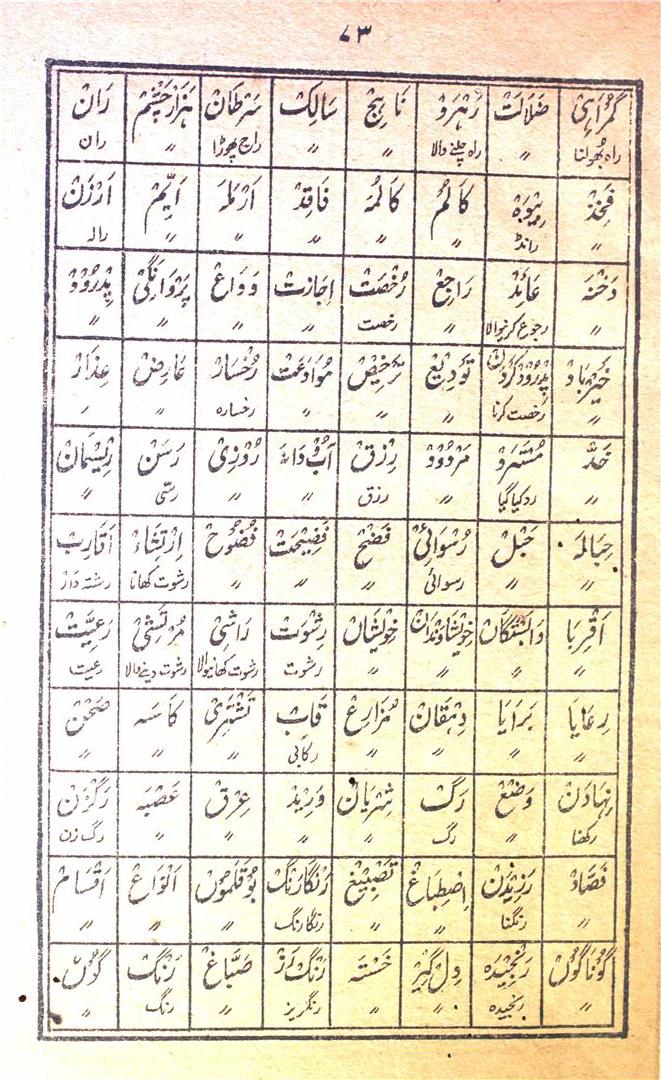 ۷۳
گمراہی ضلالت رہرو ناہج سالک سرطان ہزارچشم ران
راہ بھولنا 〃 راہ چلنے والا 〃 〃 راج پھوڑا 〃 ران
فخذ بیوہ کالم کالمہ فاقد ارملہ ایّم ارزن
〃 رانڈ 〃 〃 〃 〃 〃 رالہ
دخنہ عائد راجع رخصت اجازت وداع پروانگی پدرود
〃 رجوع کرنیوالا 〃 رخصت 〃 〃 〃 〃
خیرباد پدرود کردن تودیع ترخیص موادعت رخسار عارض عذار
〃 رخصت کرنا 〃 〃 〃 رخسارہ 〃 〃
خدّ مسترد مردود رزق آب و دانہ روزی رسن ریسمان
〃 رد کیا گیا 〃 رزق 〃 〃 رسّی 〃
حبالہ حبل رسوائی فضح فضیحت فضوح ارتشاء اقارب
〃 〃 رسوائی 〃 〃 〃 رشوت کھانا رشتہ دار
اقربا وابستگان خویشاوندان خویشاں رشوت راشی مرتشی رعیّت
〃 〃 〃 〃 رشوت رشوت کھانیوالا رشوت دینے والا رعیت
رعایا برایا دہقان مزارع قاب تشتری کاسہ صحن
〃 〃 〃 〃 رکابی 〃 〃 〃
نہادن وضع رگ شریان ورید عرق عصبہ رگزن
رکھنا 〃 رگ 〃 〃 〃 〃 رگ زن
فصّاد رزیدن اصطباغ تصبیغ رنگارنگ بوقلموں انواع اقسام
〃 رنگنا 〃 〃 رنگارنگ 〃 〃 〃
گوناگوں رنجیدہ دل گیر خستہ رنگ رز صبّاغ رنگ گوں
〃 رنجیدہ 〃 〃 رنگریز 〃 رنگ 〃